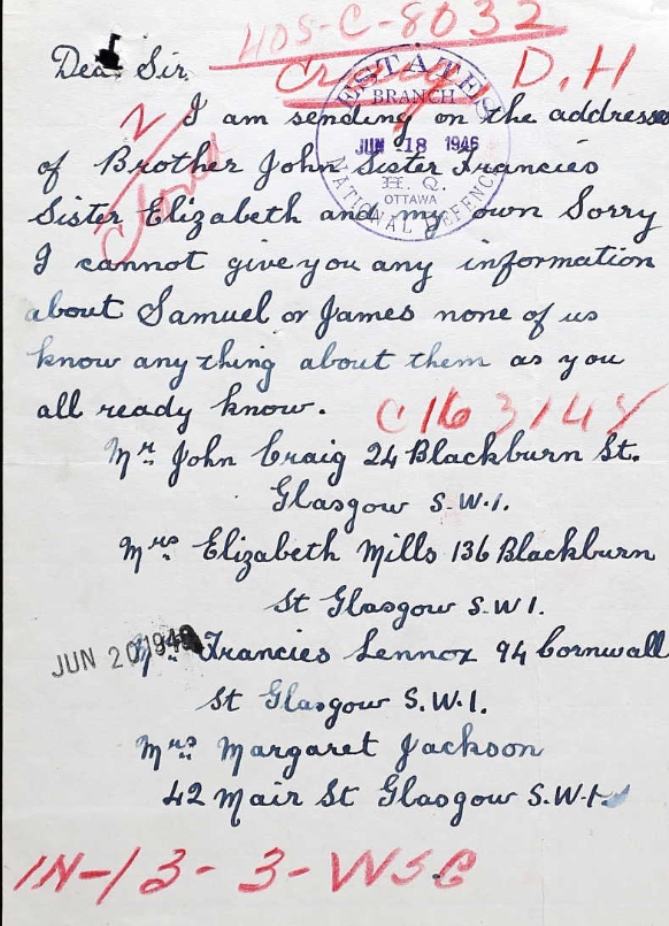 405-C-8032
Dear Sir,
Craig D.H
ESTATES
BRANCH
JUN 18 1946
H. Q.
OTTAWA
NATIONAL DEFENCE
I am sending on the addresses
of Brother John Sister Francies
Sister Elizabeth and my own Sorry
I cannot give you any information
about Samuel or James none of us
know any thing about them as you
all ready know.
C163148
Mr. John Craig 24 Blackburn St.
Glasgow S.W.1.
Mrs Elizabeth Mills 136 Blackburn
St Glasgow S.W1.
JUN 20 1946
Francies Lennox 94 Cornwall
St Glasgow S.W.1.
Mrs Margaret Jackson
42 Mair St Glasgow S.W.1
IN-13-3-WSG